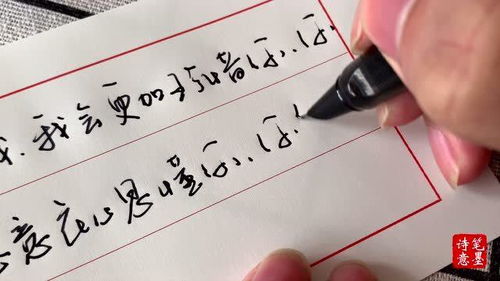 我.我会更加珍惜你.你.
意心思懂你.你.
笔墨
诗意